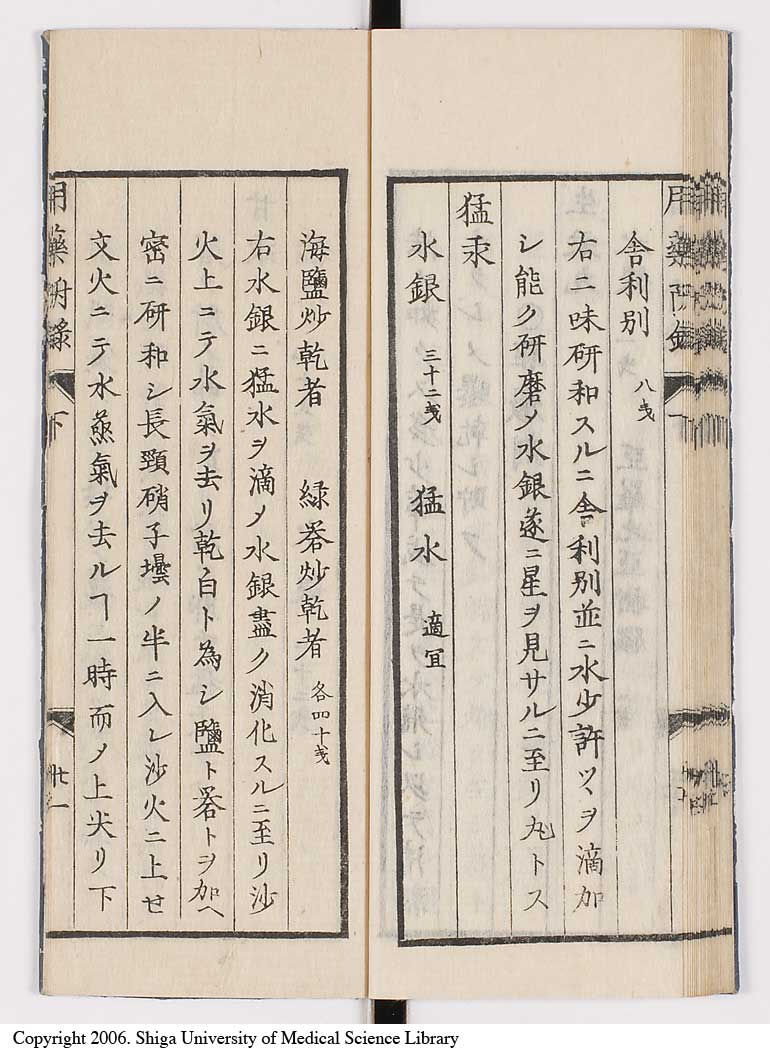 舎利別 八戔
右二味研和スルニ舎利別並ニ水少許ツヽヲ滴加
シ能ク研磨メ水銀遂ニ星ヲ見サルニ至リ丸トス
猛汞
水銀 三十二戔 猛水 適宜
海鹽炒乾者 緑礬炒乾者 各四十戔
右水銀ニ猛水ヲ滴メ水銀盡ク消化スルニ至リ沙
火上ニテ水氣ヲ去リ乾白ト為シ鹽ト礬トヲ加ヘ
密ニ研和シ長頸硝子壜ノ半ニ入レ沙火ニ上セ
文火ニテ水蒸氣ヲ去ルヿ一時而メ上尖リ下
用藥 録 下 廿一
Copyright 2006. Shiga University of Medical Science Library